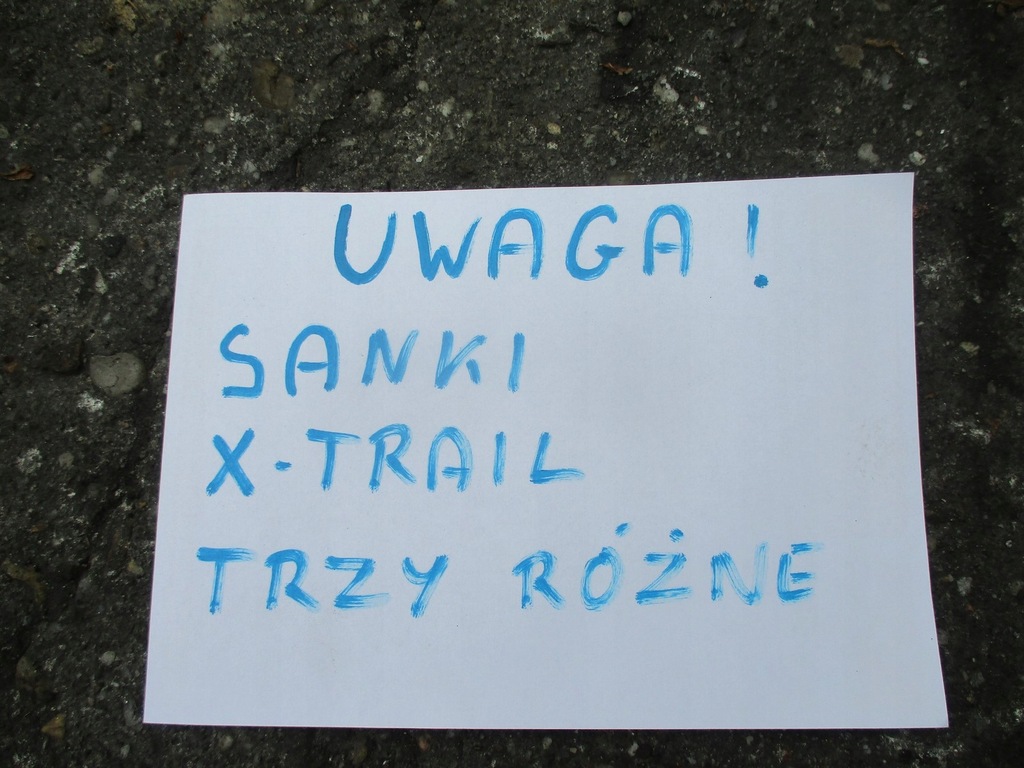 UWAGA !
SANKI
X-TRAIL
TRZY RÓŻNE